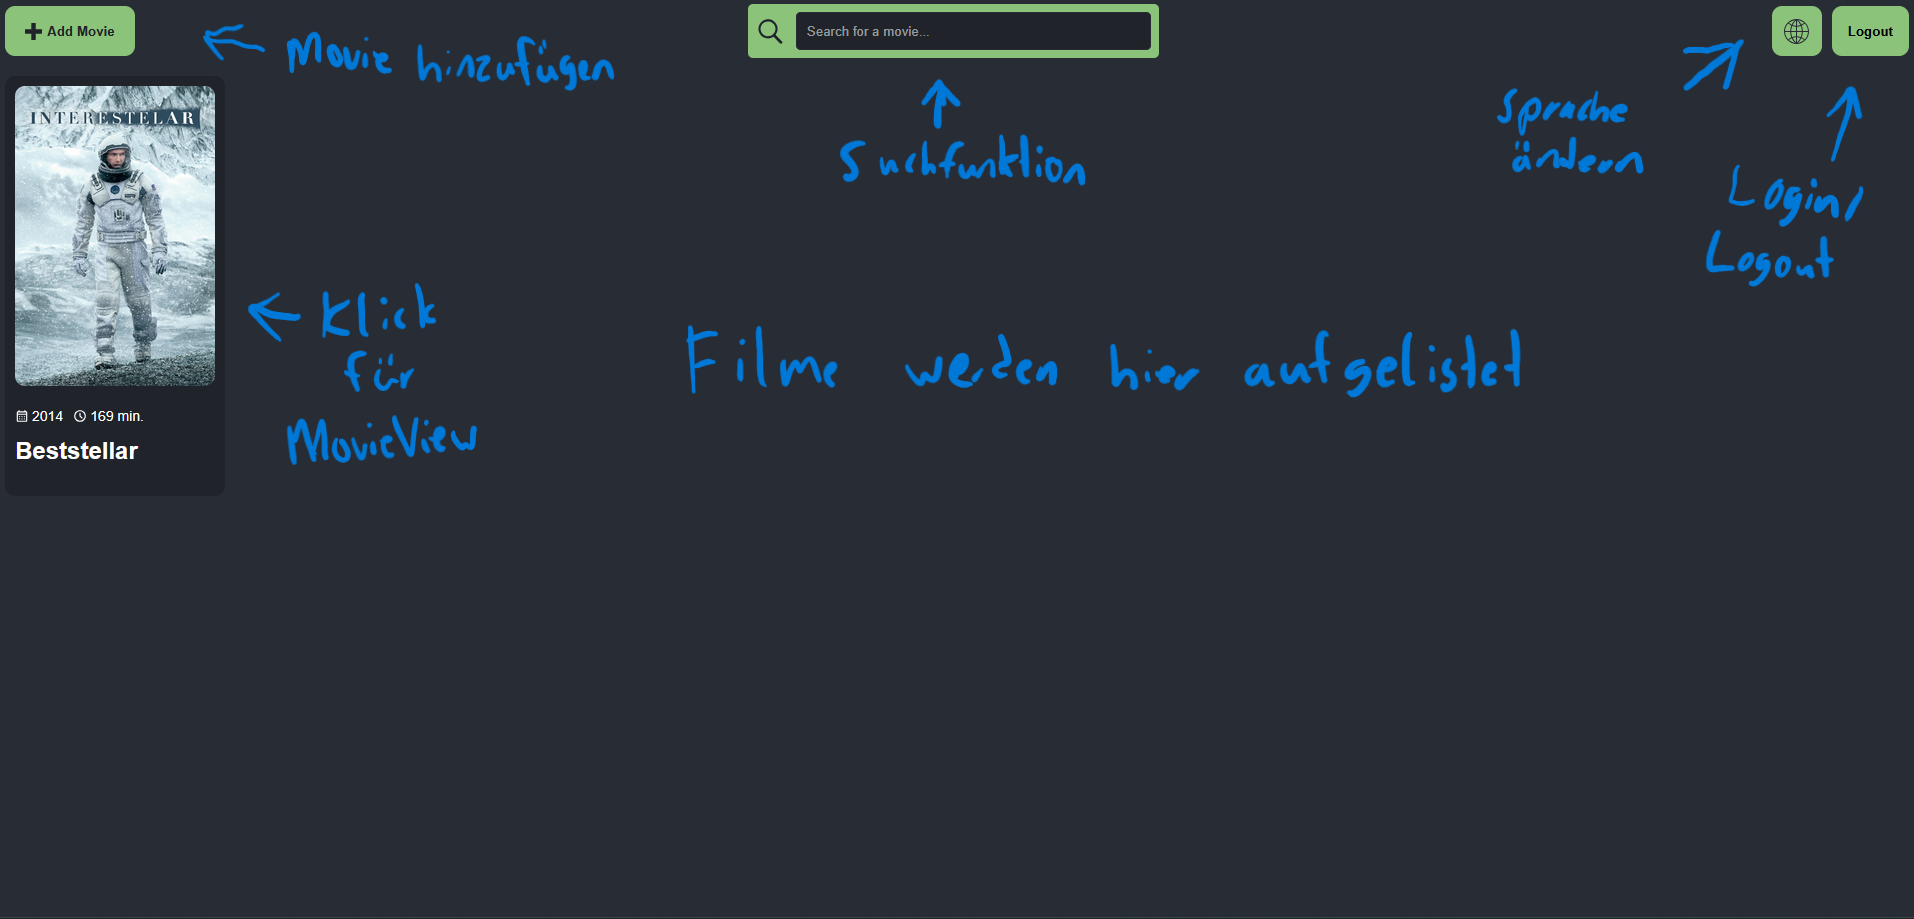 Add Movie
Movie hinzufügen
Search for a movie...
Logout
Suchfunktion
Sprache
ändern
Login/
Logout
INTERESTELAR
2014 169 min.
Beststellar
Klick
für
MovieView
Filme werden hier aufgelistet